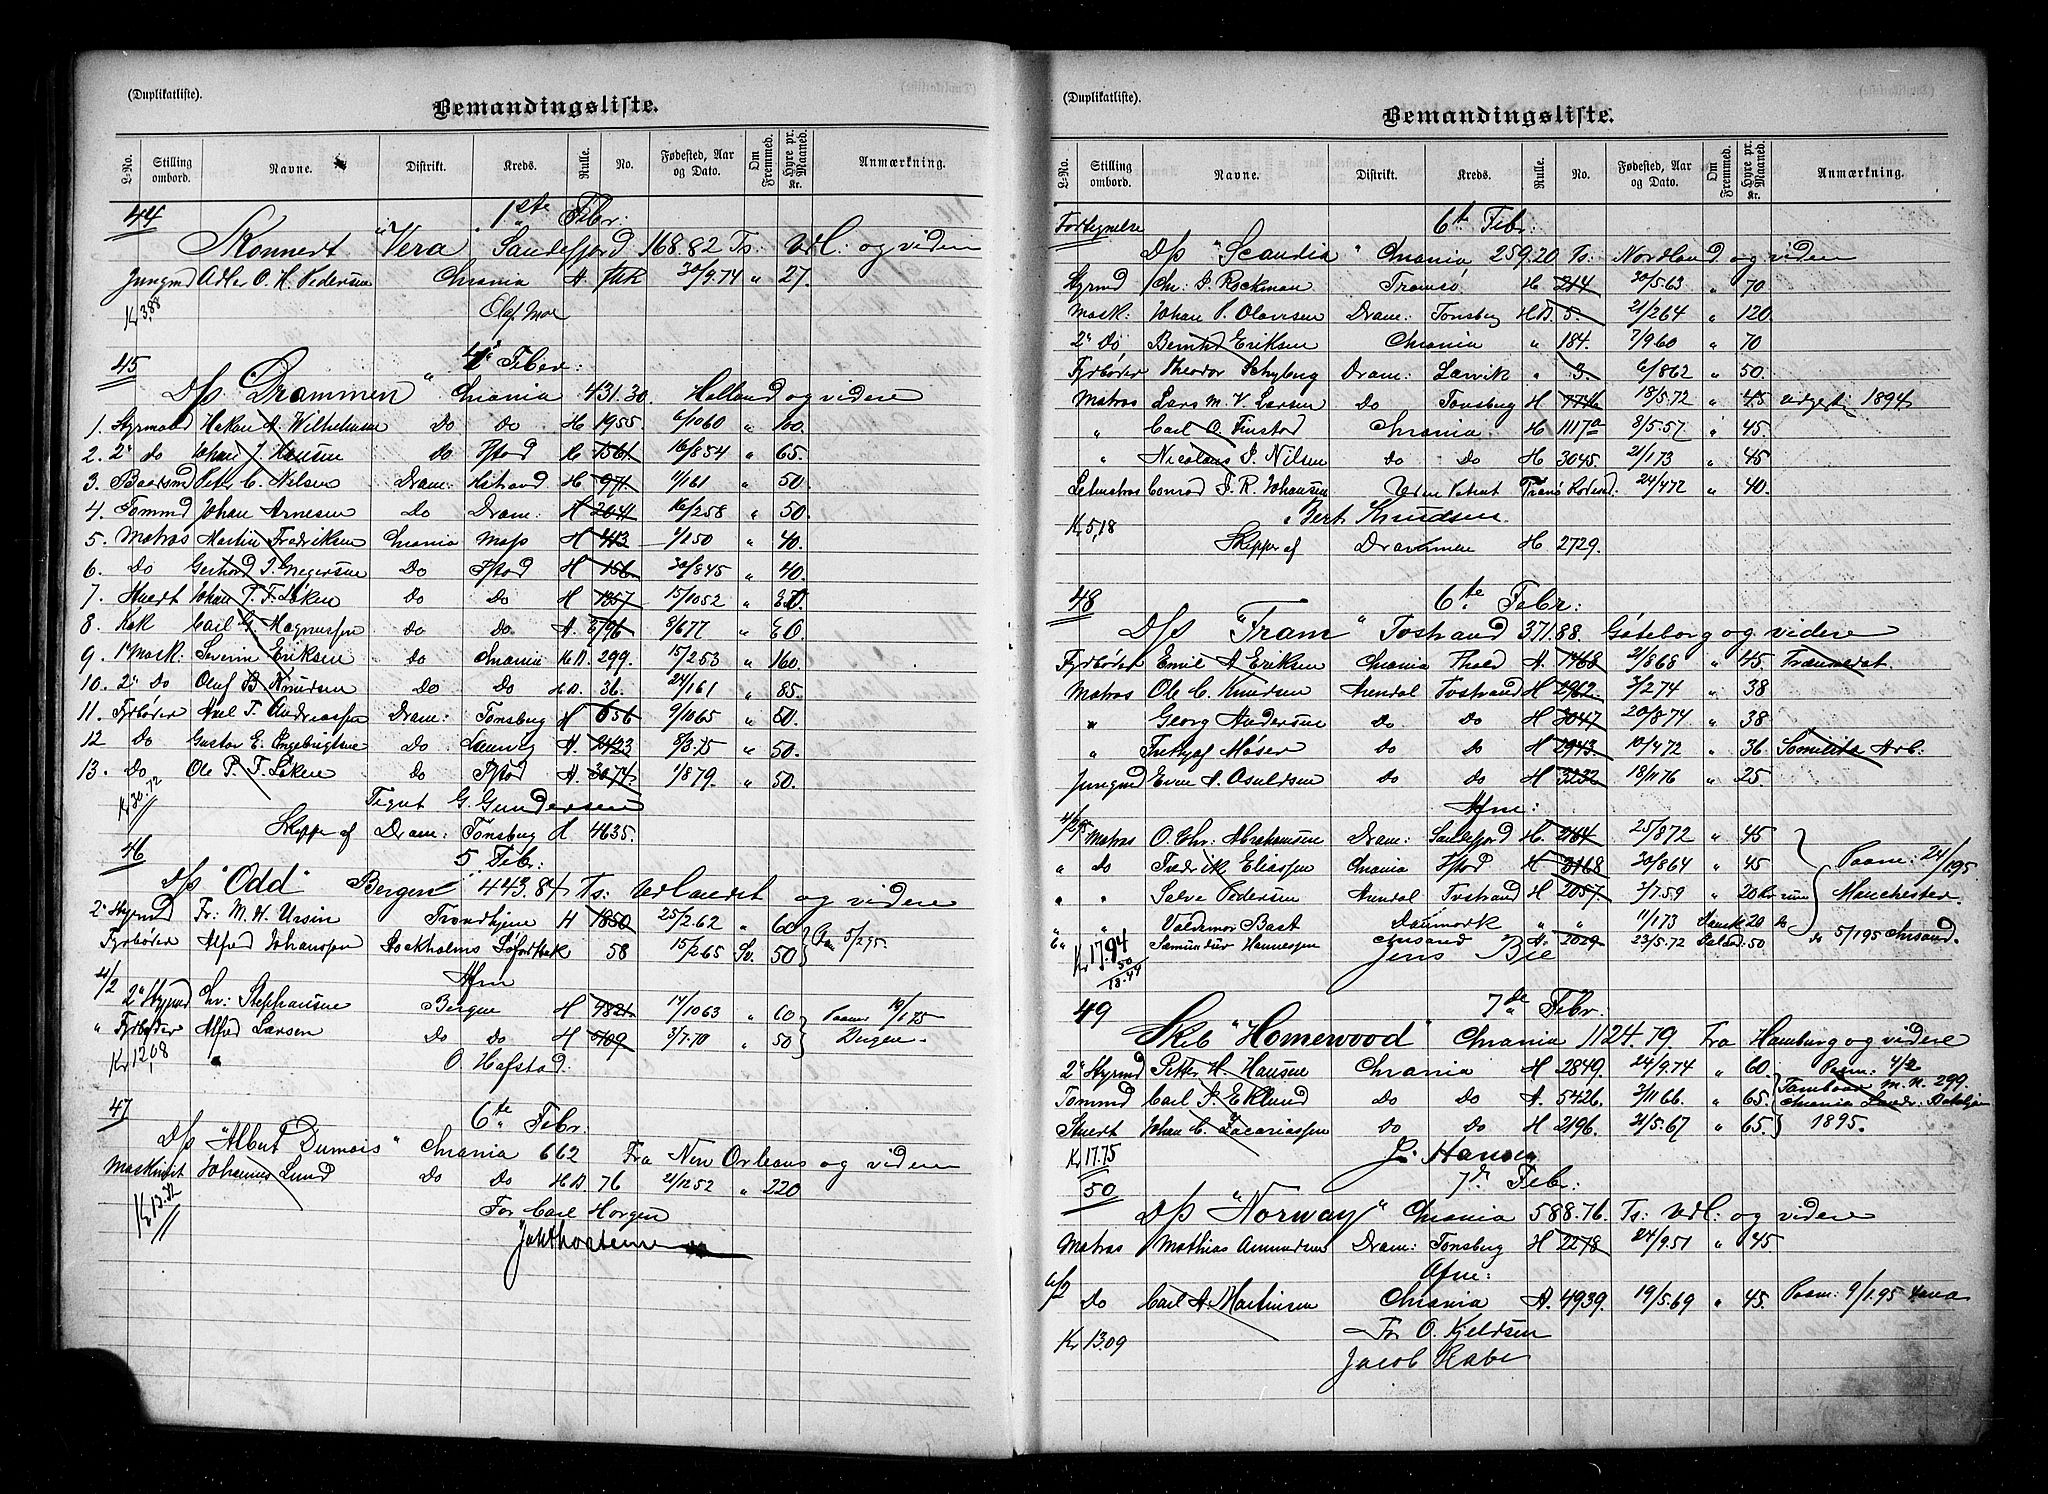 (Duplikatliste).
Bemandingsliste.
L-No. Stilling ombord. Navne. Distrikt. Kreds. Rulle. No. Fødested, Aar og Dato. Om Fremmed. Hyre pr. Maaned. Kr. Anmærkning.
44 1ste Febr:
Skonnert "Vera" Sandefjord 168.82 Ts: Udl: og videre
Jungmd Adler O. H. Pedersen Chrania A 30/9.74 " 27.
Kr 3,88
Olaf Moe
45 Febr:
D/s "Drammen" Chrania 431.30. Holland og videre
1. Styrmand Hakon A Wilhelmsen Do Do H 1955 6/10 60 " 100.
2. 2" Do Johan J. Hansen Do Fstad H 1561. 16/8 54 " 65.
3. Baadsmd Petr. C. Nilsen Dram: H 971. 1/1 61 " 50.
4. Tømmd Johan Arnesen Do Dram: H 2041 16/2 58 " 50.
5. Matros Martin Fredriksen Chrania Moss H 413 1/1 50 " 40.
6. Do Gerhard J. Gregersen Do Fstad H 156. 30/8 45 " 40.
7. Stuert Johan T. F. Løken Do Do H 1357 15/10 52 "
8. Kok Carl G. Magnussen Do Do A. 2796 3/6 77 "
9. 1" Mask. Severin Eriksen Do Chrania H.A. 299. 15/2 53 " 160.
10. 2" Do Oluf B. Knudsen Do Do H.A. 36. 24/1 61 " 85.
11. Fyrbøder Axel T. Andreassen Dram: Tønsberg H 656 9/10 65 " 50.
12 Do Gustav E. Engebrigtsen Do Laurvig A. 2423 8/3.75 " 50.
13. Do Ole P. F. Løken Do Fstad A. 3074. 1/8 79. " 50.
Kr 30.72
G. Gundersen
Skipper af Dram: Tønsberg H 4635.
46 5 Febr:
D/s "Odd" Bergen 443.84 Ts: Udlandet og videre
2" Styrmd Fr. M. H. Ursin Trondhjem H 1850 25/2.62 " 60
Fyrbøder Alfred Johanssen Stockholms 58 15/2 65 Sv. 50 Paa 5/2 95.
Afm
4/2 2" Styrmd Chr: Stephansen Bergen H 4821 14/10 63 " 60 Paam:
" Fyrbøder Alfred Larsen Do Do H 5409 3/7.70 " 50 Bergen.
Kr 12,08
O. Hafstad.
47 6te Febr:
D/s "Albert Dumois" Chrania 662 Fra New Orleans og videre
Maskinist Johannes Lund Do Do H.A. 76 21/12 52 " 220
Kr 13.32
For Carl Horgen
(Duplikatliste).
Bemandingsliste.
L-No. Stilling ombord. Navne. Distrikt. Kreds. Rulle. No. Fødested, Aar og Dato. Om Fremmed. Hyre pr. Maaned. Kr. Anmærkning.
Fortegnelse 6te Febr:
D/s "Scandia" Chrania 259.20 Ts. Nordland og videre
Styrmd Chr: S. Rockman Tromsø H 214 30/5.63 " 70
Mask: Johan P. Olavesen Dram: Tønsberg H.A. 5. 21/2 64 " 120.
2" Do Bernhd Eriksen Chrania " 184. 7/9 60 " 70
Fyrbøder Theodor Schyberg Dram: Larvik " 3. 6/8 62 " 50.
Matros Lars M. V. Larsen Do Tønsberg H 7746 18/5.72 " 45 1894
" Carl O. Finstad Chrania. H. 1117a 8/5.57 " 45.
" Nicolaus J. Nilsen Do Do H 3045. 21/1 73 " 45
Letmatros Conrad F. R. Johansen Uden Patent 24/4 72 " 40.
Kr 5,18
Bert Knudsen.
Skipper af Drammen H 2729.
48 6te Febr:
D/s "Fram" Tvstrand 371.88. Gøteborg og videre
Fyrbøder Emil A Eriksen Chrania Fhald A. 1468 21/8 68 " 45.
Matros Ole C. Knudsen Arendal Tvstrand H 2962. 3/2 74 " 38
" Georg Andersen Do Do H 3047 20/8.74 " 38
" Frithjof Møser Do Do H 2943 10/4 72 " 36
Jungmd Even A. Osuldsen Do Do H 3232 18/11 76 " 25
Afm:
Matros O. Chr: Abrahamsen Dram: Sandefjord H. 2164 25/8 72 " 45
" Do Fredrik Eliassen Chrania Fstad H 3168 30/8 64 " 45 Paam: 24/1 95.
" " Salve Pedersen Arendal Tvstrand H 2057 3/7.59 " 20 Manchester.
" " Valdemar Bast Danmark " " 11/1 73 Dansk 20
" Samundur Hannessen Chrsand A. 2029 23/5.72 50 Do 5/1 95 Chrsand.
Kr 17.94
50
18.44
Jens Bie
49 7de Febr.
Skib "Homewood" Chrania 1124.79 Fra Hamburg og videre
2" Styrmd Petter H. Hansen Chrania H 2849. 24/9.74 " 60. Paam: 4/2
Tømmd Carl J. Eklund Do Do A. 5426. 3/11 66. " 65 M. N. 299.
Stuert Johan C. Zacariassen Do Do H 2196. 21/5.67 " 65. 1895.
Kr 17.75
J. Hansen
50 7de Febr:
D/s "Norway" Chrania 588.76. Ts: Udl: og videre
Matros Mathias Amundsen Dram: Tønsberg H 2278 24/9.51 " 45
Afm:
6/2 Do Carl A. Martinsen Chrania A. 4939. 19/5.69 " 45. Paam: 9/1.95
Kr 13.09
For O. Kjeldsen
Jacob Rabe